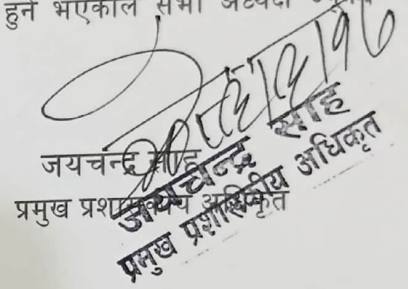 हुने भएकोले सभा
जयचन्द्र साह
प्रमुख प्रशासकीय अधिकृत
जयचन्द्र साह
प्रमुख प्रशासकीय अधिकृत